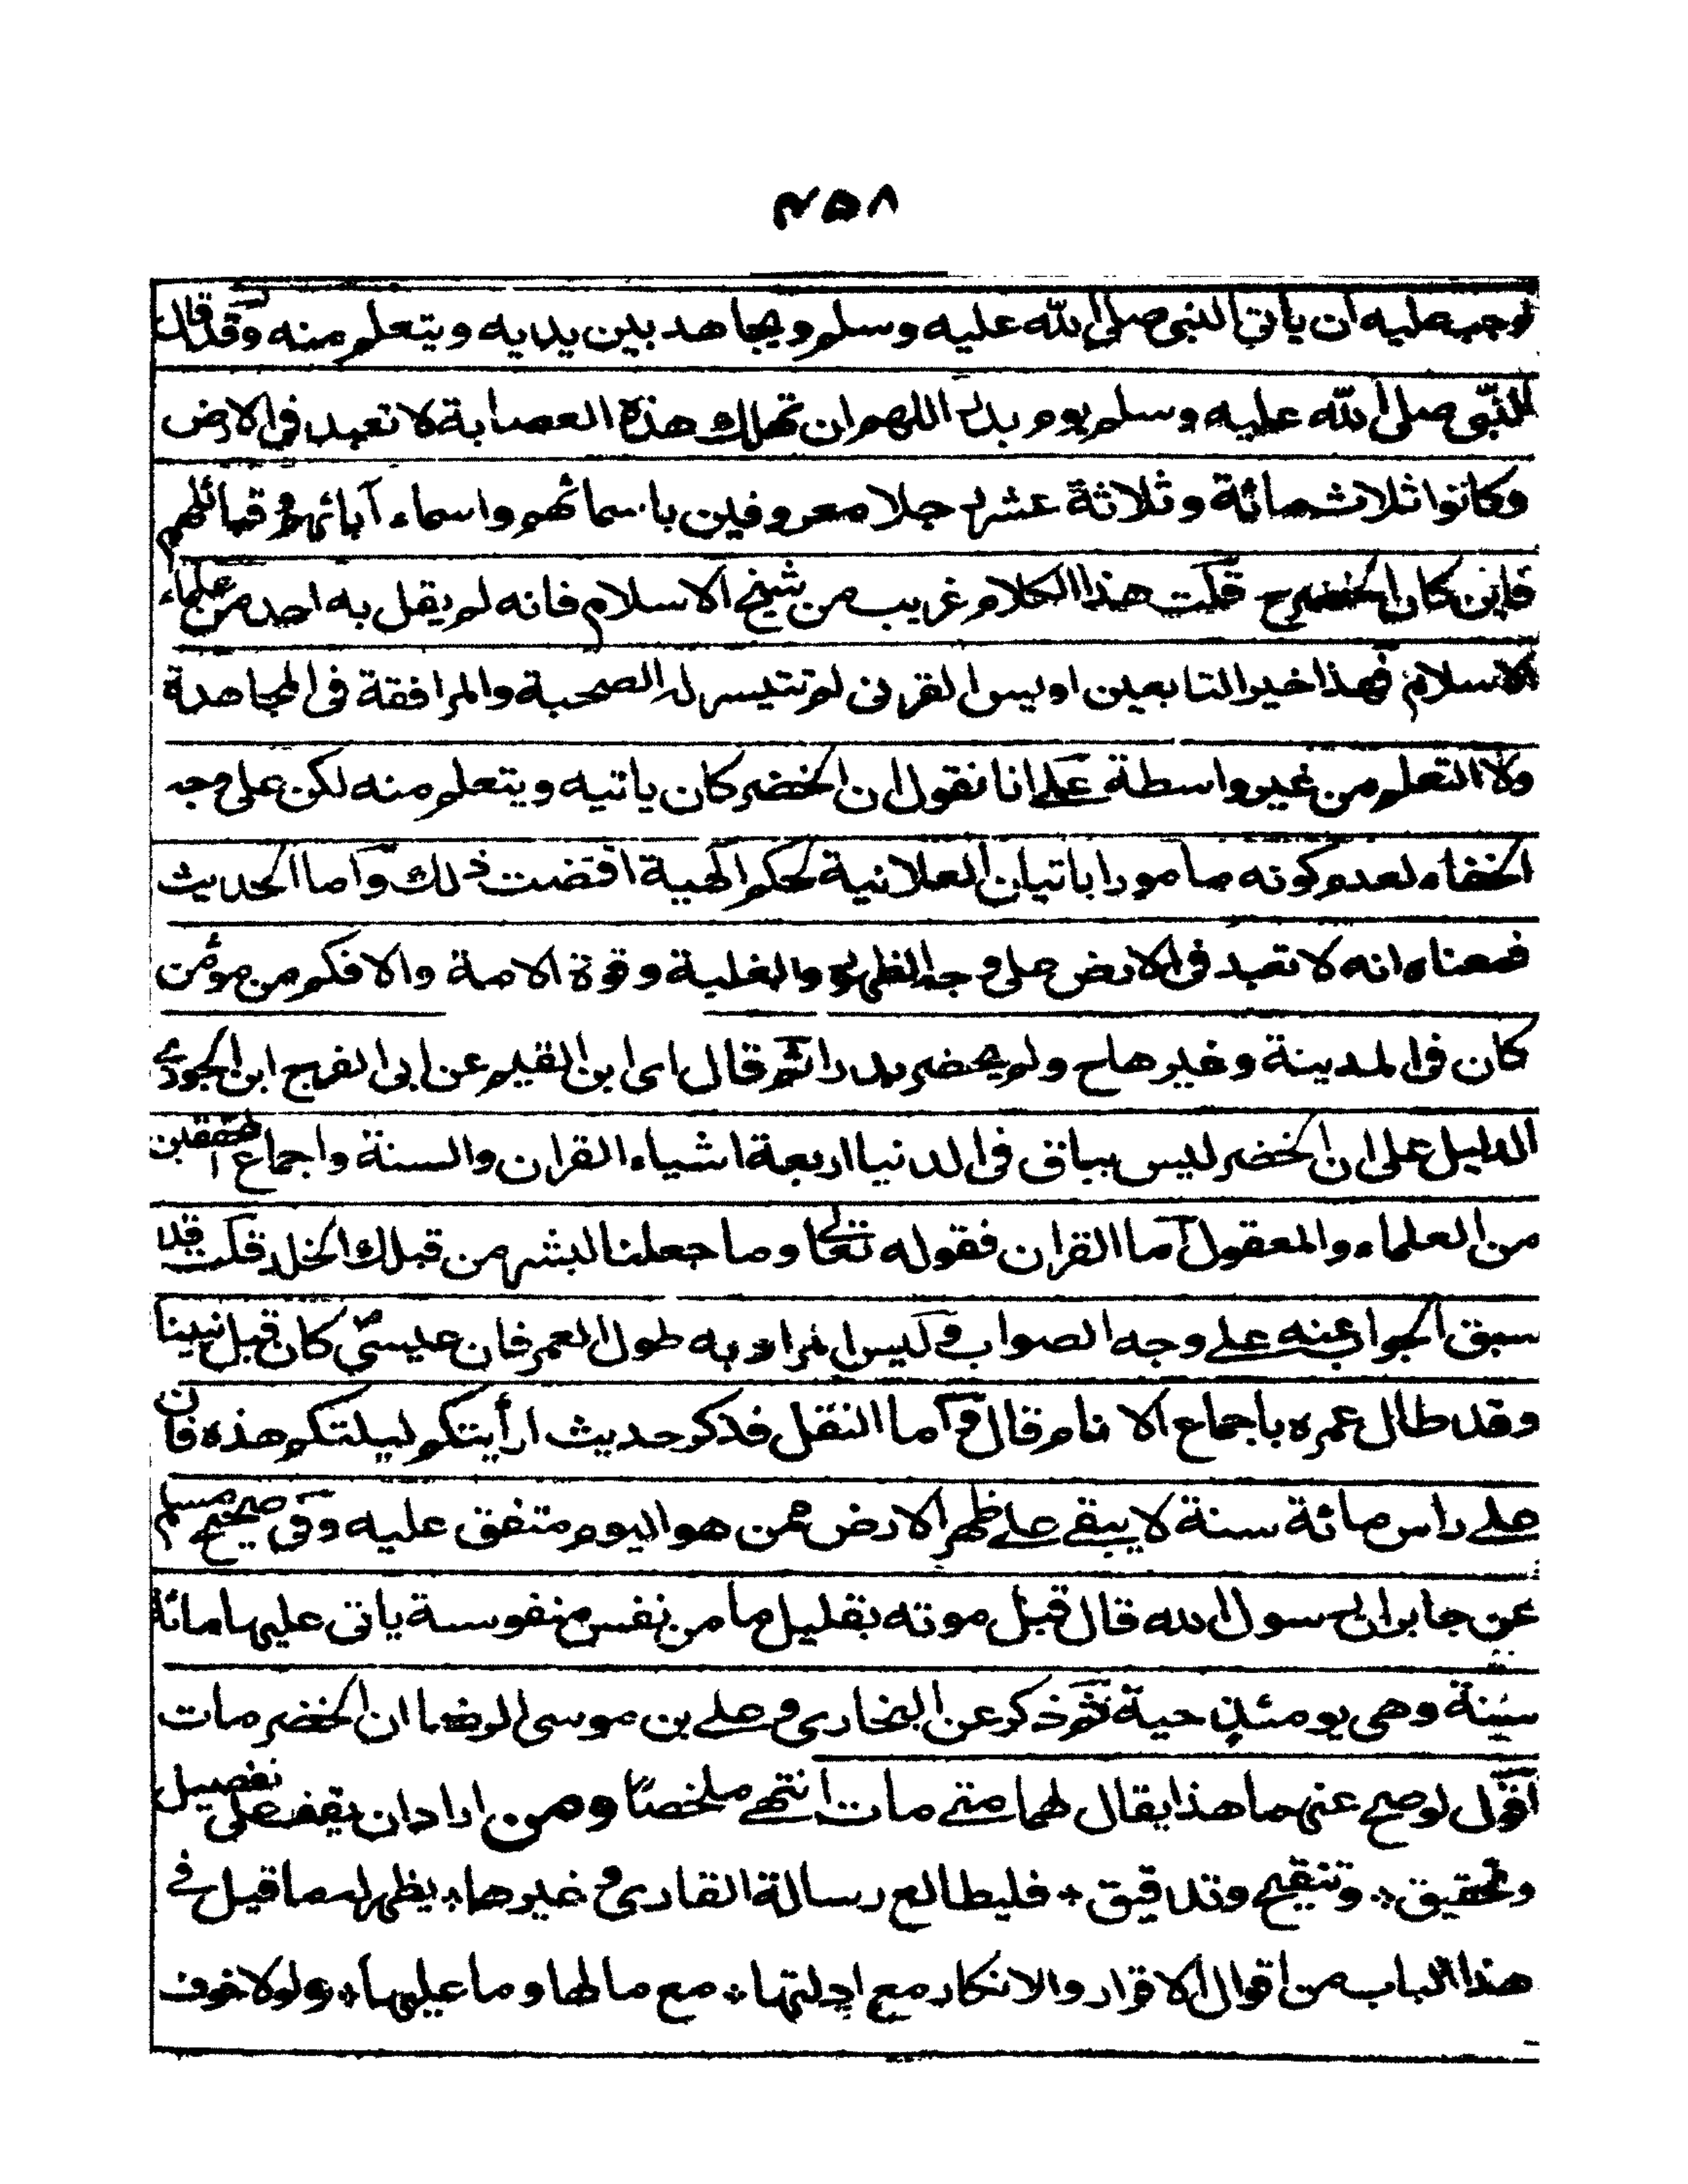 ٢٥٨
لوجب عليه ان يأتى النبى صلى الله عليه وسلم ويجاهد بين يديه ويتعلم منه وقد قال
النبى صلى الله عليه وسلم يوم بدر اللهم ان تهلك هذه العصابة لا تعبد فى الارض
وكانوا ثلاث مائة وثلاثة عشر رجلا معروفين باسمائهم واسماء آبائهم وقبائلهم
فاين كان الخضر ح قلت هذا الكلام غريب من شيخ الاسلام فانه لم يقل به احد من علماء
الاسلام فهذا خير التابعين اويس القرنى لم تتيسر له الصحبة والمرافقة فى المجاهدة
ولا التعلم من غير واسطة على انا نقول ان الخضر كان ياتيه ويتعلم منه لكن على وجه
الخفاء لعدم كونه مامورا باتيان العلانية لحكم الهية اقتضت ذلك واما الحديث
فمعناه انه لا تعبد فى الارض على وجه الظهور والغلبة وقوة الامة والا فكم من مؤمن
كان فى المدينة وغيرها ح ولم يحضر بدرا ثم قال اى ابن القيم عن ابى الفرج ابن الجوزى
الدليل على ان الخضر ليس بباق فى الدنيا اربعة اشياء القران والسنة واجماع المحققين
من العلماء والمعقول اما القران فقوله تعالى وما جعلنا لبشر من قبلك الخلد قلت قد
سبق الجواب عنه على وجه الصواب وليس المراد به طول العمر فان عيسىٰ كان قبل نبينا
وقد طال عمره باجماع الانام قال واما النقل فذكر حديث ارأيتكم ليلتكم هذه فان
على راس مائة سنة لا يبقى على ظهر الارض ممن هو اليوم متفق عليه وفى صحيح مسلم
عن جابر ان رسول الله قال قبل موته بقليل ما من نفس منفوسة ياتى عليها مائة
سنة وهى يومئذ حية ثم ذكر عن البخارى وعلى بن موسى الرضا ان الخضر مات
اقول لو صح عنهما هذا يقال لهما متى مات انتهى ملخصًا ومن اراد ان يقف على تفصيل
وتحقيق * وتنقيح وتدقيق * فليطالع رسالة القارى وغيرها * يظهر له ما قيل فى
هذا الباب من اقوال الاقرار والانكار مع ادلتها * مع ما لها وما عليها * ولولا خوف